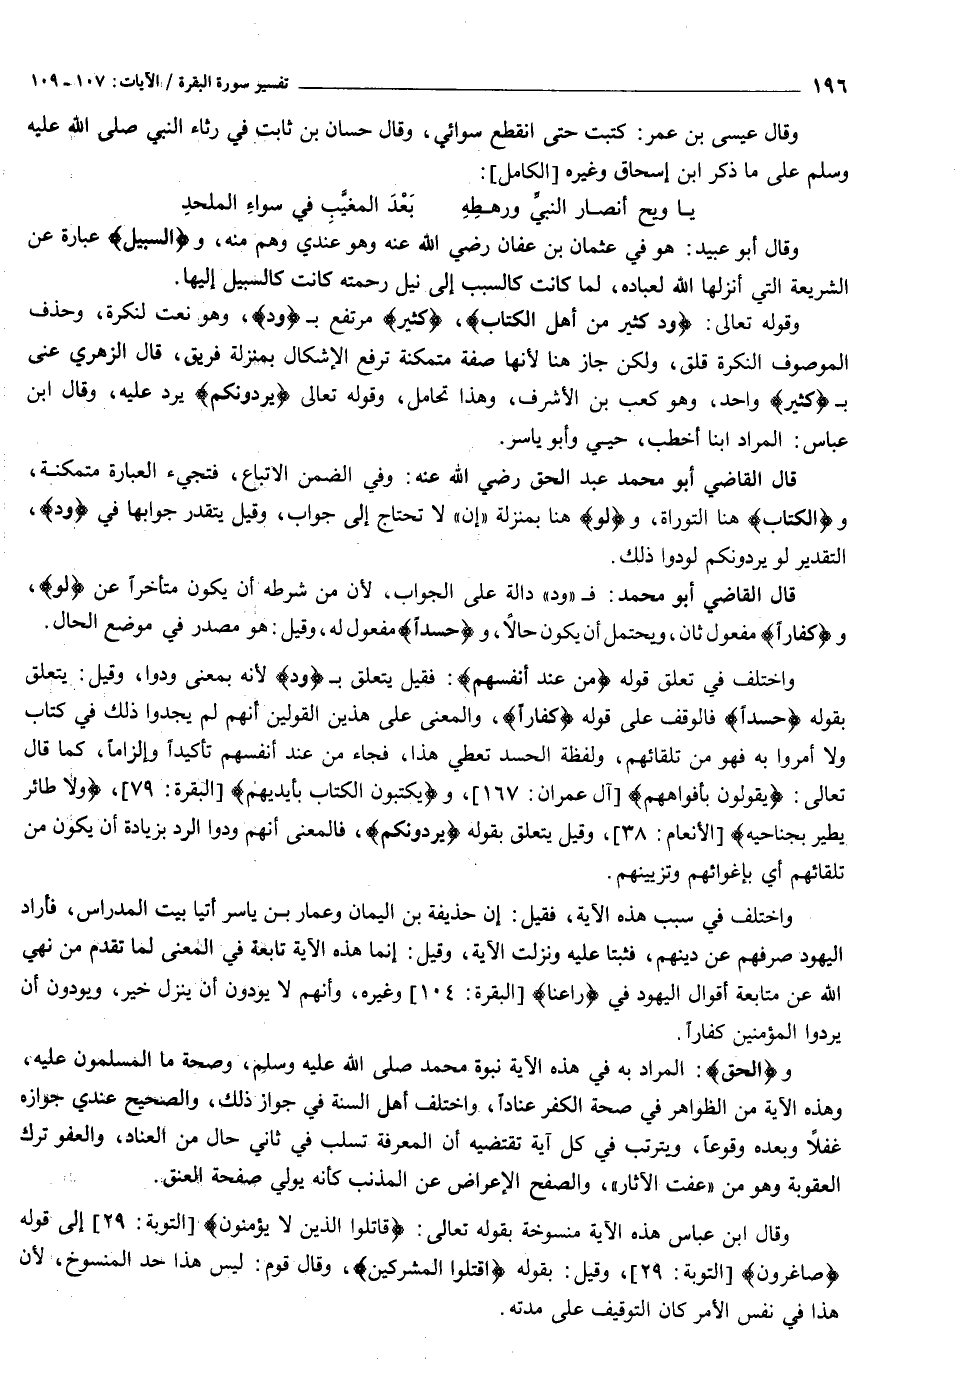 ١٩٦ تفسير سورة البقرة / الآيات: ١٠٧ - ١٠٩
وقال عيسى بن عمر: كتبت حتى انقطع سوائي، وقال حسان بن ثابت في رثاء النبي صلى الله عليه
وسلم على ما ذكر ابن إسحاق وغيره [الكامل]:
يـا ويح أنصـار النبيِّ ورهـطهِ بَعْدَ المغيَّبِ في سواءِ الملحدِ
وقال أبو عبيد: هو في عثمان بن عفان رضي الله عنه وهو عندي وهم منه، و ﴿السبيل﴾ عبارة عن
الشريعة التي أنزلها الله لعباده، لما كانت كالسبب إلى نيل رحمته كانت كالسبيل إليها.
وقوله تعالى: ﴿ود كثير من أهل الكتاب﴾، ﴿كثير﴾ مرتفع بـ ﴿ود﴾، وهو نعت لنكرة، وحذف
الموصوف النكرة قلق، ولكن جاز هنا لأنها صفة متمكنة ترفع الإشكال بمنزلة فريق، قال الزهري عنى
بـ ﴿كثير﴾ واحد، وهو كعب بن الأشرف، وهذا تحامل، وقوله تعالى ﴿يردونكم﴾ يرد عليه، وقال ابن
عباس: المراد ابنا أخطب، حيـي وأبو ياسر.
قال القاضي أبو محمد عبد الحق رضي الله عنه: وفي الضمن الاتباع، فتجيء العبارة متمكنـة،
و ﴿الكتاب﴾ هنا التوراة، و ﴿لو﴾ هنا بمنزلة «إن» لا تحتاج إلى جواب، وقيل يتقدر جوابها في ﴿ود﴾،
التقدير لو يردونكم لودوا ذلك.
قال القاضي أبو محمد: فـ «ود» دالة على الجواب، لأن من شرطه أن يكون متأخراً عن ﴿لو﴾،
و ﴿كفاراً﴾ مفعول ثان، ويحتمل أن يكون حالاً، و ﴿حسداً﴾ مفعول له، وقيل: هو مصدر في موضع الحال.
واختلف في تعلق قوله ﴿من عند أنفسهم﴾: فقيل يتعلق بـ ﴿ود﴾ لأنه بمعنى ودوا، وقيل: يتعلق
بقوله ﴿حسداً﴾ فالوقف على قوله ﴿كفاراً﴾، والمعنى على هذين القولين أنهم لم يجدوا ذلك في كتاب
ولا أمروا به فهو من تلقائهم، ولفظة الحسد تعطي هذا، فجاء من عند أنفسهم تأكيداً وإلزاماً، كما قال
تعالى: ﴿يقولون بأفواههم﴾ [آل عمران: ١٦٧]، و ﴿يكتبون الكتاب بأيديهم﴾ [البقرة: ٧٩]، ﴿ولا طائر
يطير بجناحيه﴾ [الأنعام: ٣٨]، وقيل يتعلق بقوله ﴿يردونكم﴾، فالمعنى أنهم ودوا الرد بزيادة أن يكون من
تلقائهم أي بإغوائهم وتزيينهم.
واختلف في سبب هذه الآية، فقيل: إن حذيفة بن اليمان وعمار بـن ياسر أتيا بيت المدراس، فأراد
اليهود صرفهم عن دينهم، فثبتا عليه ونزلت الآية، وقيل: إنما هذه الآية تابعة في المعنى لما تقدم من نهي
الله عن متابعة أقوال اليهود في ﴿راعنا﴾ [البقرة: ١٠٤] وغيره، وأنهم لا يودون أن ينزل خير، ويودون أن
يردوا المؤمنين كفاراً.
و ﴿الحق﴾: المراد به في هذه الآية نبوة محمد صلى الله عليه وسلم، وصحة ما المسلمون عليه،
وهذه الآية من الظواهر في صحة الكفر عناداً، واختلف أهل السنة في جواز ذلك، والصحيح عندي جوازه
غفلاً وبعده وقوعاً، ويترتب في كل آية تقتضيه أن المعرفة تسلب في ثاني حال من العناد، والعفو ترك
العقوبة وهو من «عفت الآثار»، والصفح الإعراض عن المذنب كأنه يولي صفحة العنق.
وقال ابن عباس هذه الآية منسوخة بقوله تعالى: ﴿قاتلوا الذين لا يؤمنون﴾ [التوبة: ٢٩] إلى قوله
﴿صاغرون﴾ [التوبة: ٢٩]، وقيل: بقوله ﴿اقتلوا المشركين﴾، وقال قوم: ليس هذا حد المنسوخ، لأن
هذا في نفس الأمر كان التوقيف على مدته.